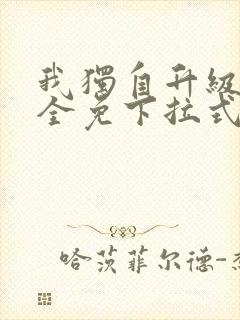 我獨自升級
全免下拉式
哈茨菲尔德-杰